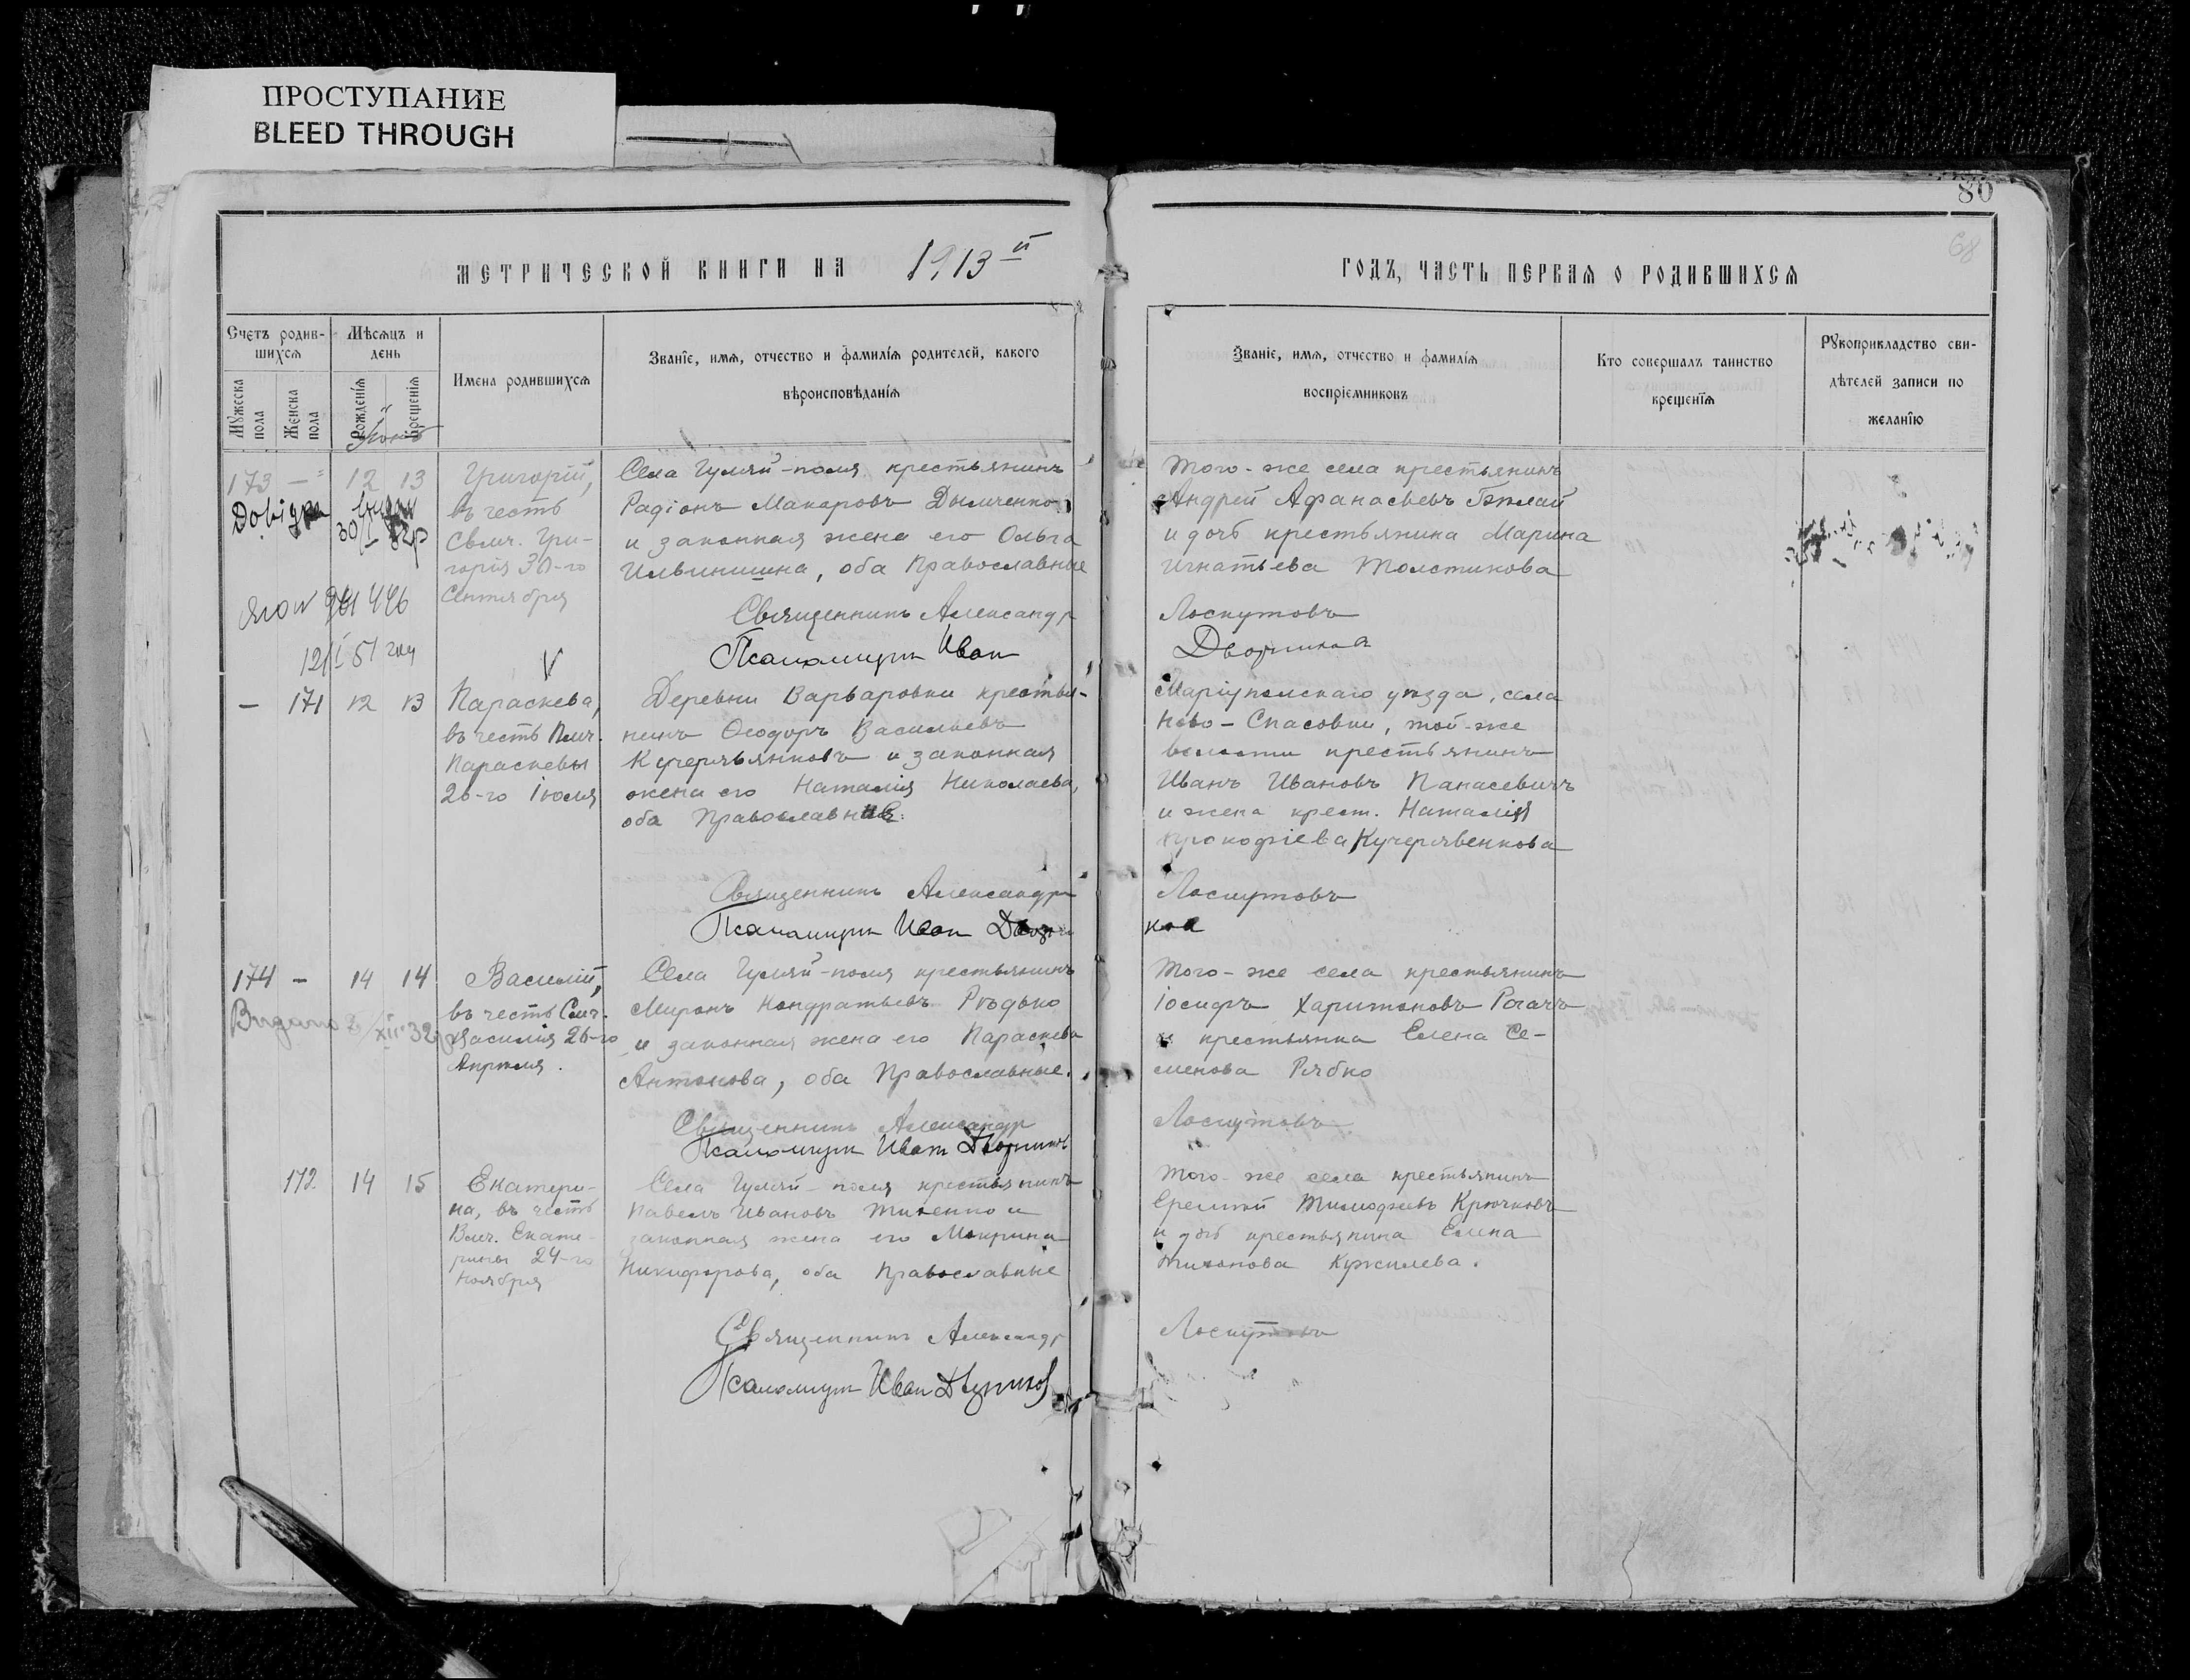 ПРОСТУПАНИЕ
BLEED THROUGH
80
68
МЕТРИЧЕСКОЙ КНИГИ НА 1913 й
ГОДЪ, ЧАСТЬ ПЕРВАЯ О РОДИВШИХСЯ
Счетъ родив-
шихся
Мѣсяцъ и
день
Мужеска
пола
Женска
пола
Рожденія
Крещенія
Имена родившихся
Званіе, имя, отчество и фамилія родителей, какого
вѣроисповѣданія
Званіе, имя, отчество и фамилія
воспріемниковъ
Кто совершалъ таинство
крещенія
Рукоприкладство сви-
дѣтелей записи по
желанію
173 — 12 13
Григорій,
въ честь
Свмч. Гри-
горія 30-го
Сентября
Села Гуляй-поля крестьянинъ
Радіонъ Макаровъ Дымченко
и законная жена его Ольга
оба Православные
Того-же села крестьянинъ
Андрей Афанасьевъ Бѣлай
и дочь крестьянина Марина
Игнатьева Толстикова
Довідка видан
30/I 32р
446
12/I 51 году
V
Священникъ Александр Лоскутовъ
Псаломщик Иван Дворников
— 171 12 13
Параскева,
въ честь Пмч.
Параскевы
26-го Іюля
Деревни Варваровки крестья-
нинъ Ѳеодоръ Васильевъ
и законная
жена его Наталія Николаева,
оба Православные.
Маріупольскаго уѣзда, села
Ново-Спасовки, той-же
волости крестьянинъ
Иванъ Ивановъ Панасевичъ
и жена крест. Наталія
Прокофіева Кучерявенкова
Священникъ Александръ Лоскутовъ
Псаломщик Иван Дворников
174 — 14 14
Василій,
въ честь Смч.
Василія 26-го
Апрѣля.
Видано XII 32
Села Гуляй-поля крестьянинъ
Миронъ Кондратьевъ Рѣдько
и законная жена его Параскева
Антонова, оба Православные.
Того-же села крестьянинъ
Іосифъ Харитоновъ Рогачъ
и крестьянка Елена Се-
менова Рябко
Священникъ Александр Лоскутовъ
Псаломщик Иван Дворников
172. 14 15
Екатери-
на, въ честь
Вмч. Екате-
рины 24-го
Ноября
Села Гуляй-поля крестьянинъ
Павелъ Ивановъ Тихенко и
законная жена его Мокрина
Никифорова, оба Православные
Того-же села крестьянинъ
Еремѣй Тимофеевъ Крючковъ
и дочь крестьянина Елена
Тихонова
Священникъ Александр Лоскутовъ
Псаломщик Иван Дворников